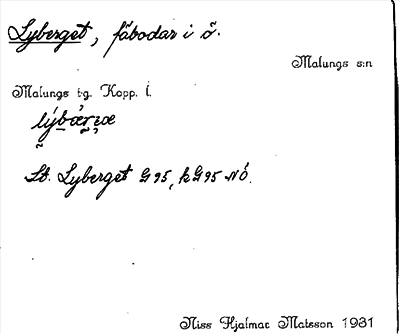 Lyberget, fäbodar i ö.
Malungs s:n
Malungs tg. Kopp. l.
St. Lyberget G 95, k G 95 NÖ.
Niss Hjalmar Matsson 1931